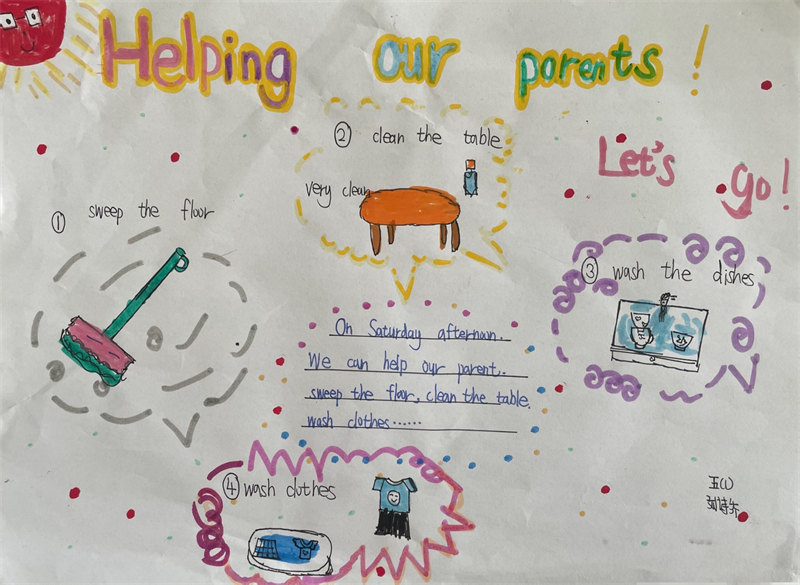 Helping our parents!
Let's go!
① sweep the floor
② clean the table
very clean
③ wash the dishes
On Saturday afternoon.
We can help our parent.
sweep the floor, clean the table.
wash clothes……
④ wash clothes
五(1)